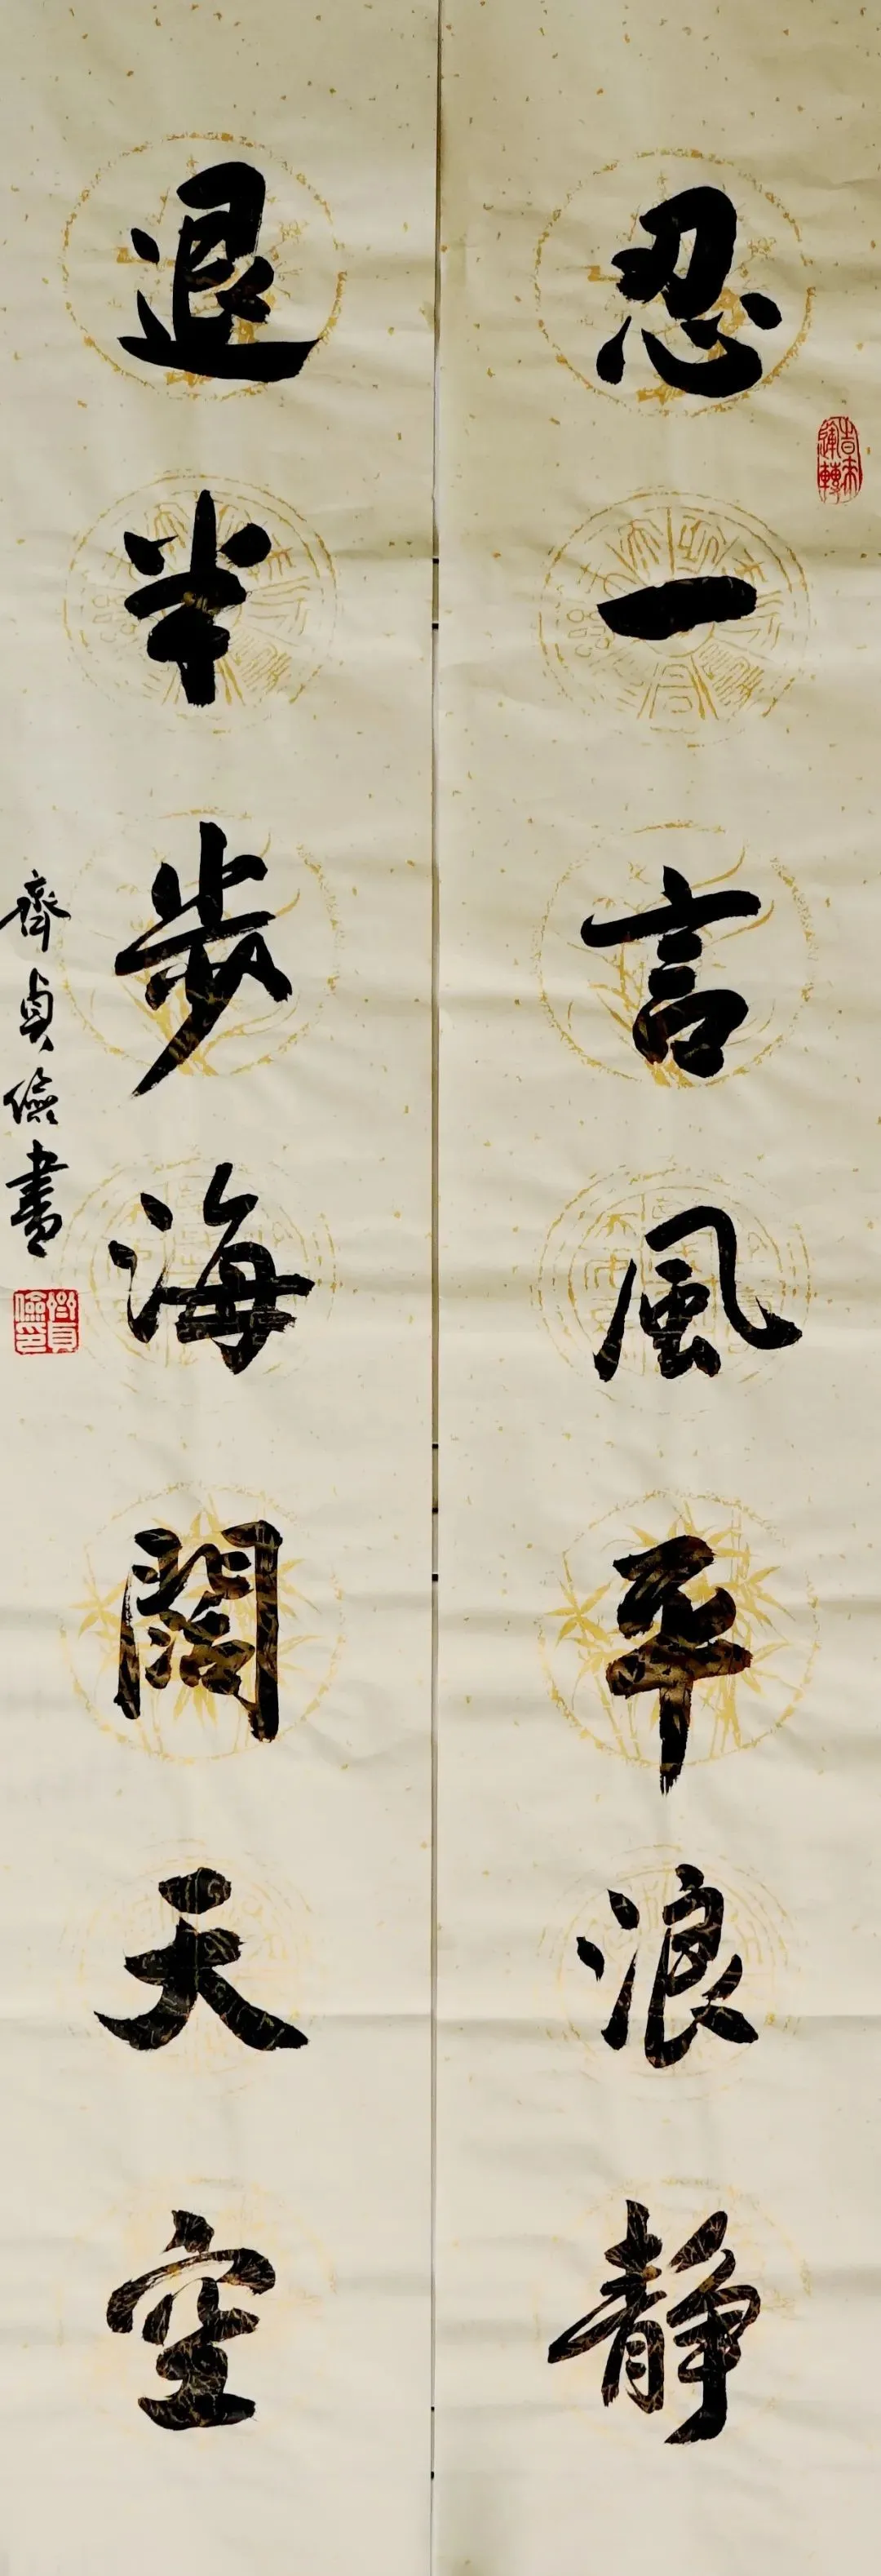 忍一言風平浪静
退半步海闊天空
齊貞儉書